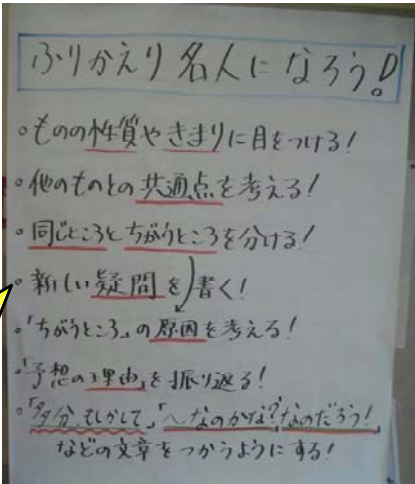 ふりかえり名人になろう!
。ものの性質やきまりに目をつける!
。他のものとの共通点を考える!
。同じところとちがうところを分ける!
。新しい疑問を書く!
。「ちがうところ」の原因を考える!
。「予想の理由」を振り返る!
。「多分、もしかして」「~なのかな?なのだろう!
などの文章をつかうようにする!